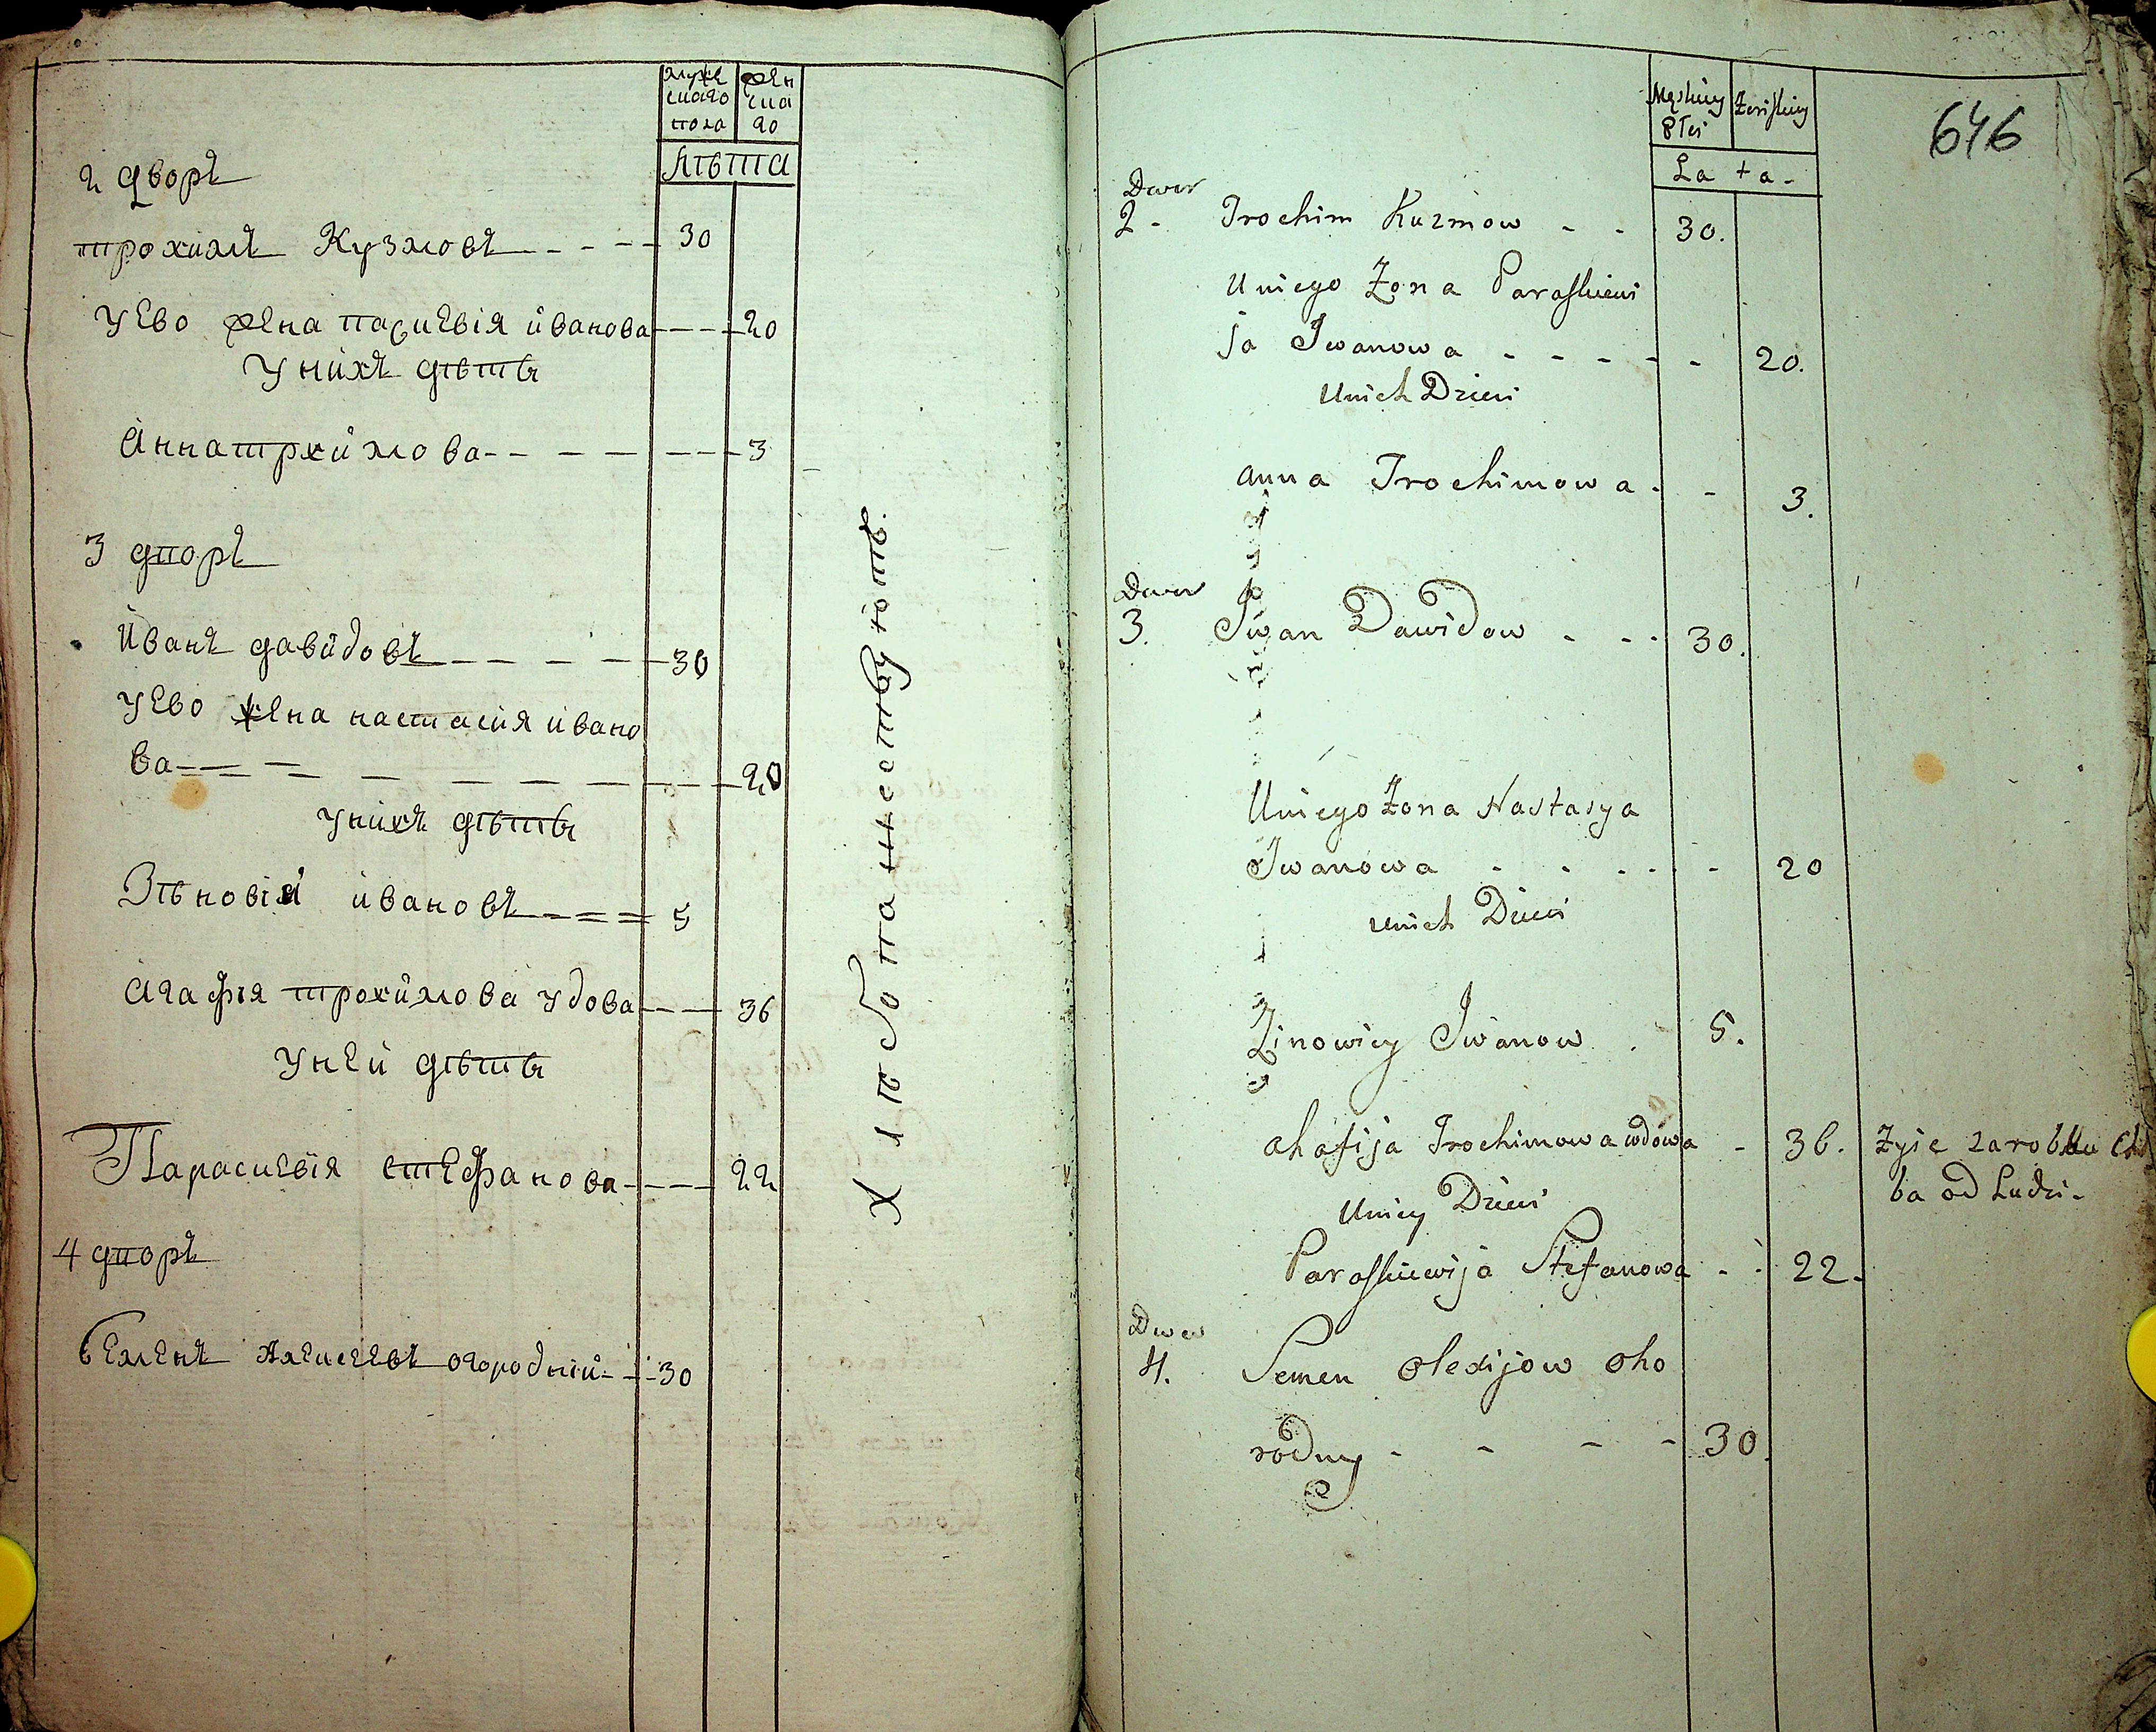 муже
скаго
пола
жен
ска
го
лѣта
2 дворъ
трохимъ Кузмовъ - - - - 30
У ево жена параскевія йванова - - - 20
У нихъ дѣтъ
Анна трхимова - - - - - - 3
3 дворъ
Йванъ давидовъ - - - - 30
У ево жена настасия йвано
ва - - - - - - 20
У нихъ дѣтъ
Зѣновій йвановъ - - - 5
Агафия трохимова удова - - - 36
У ней дѣтъ
Параскевія стефанова - - - 22
4 дворъ
Семенъ Алексеевъ огородній - - - 30
Хлѣбопашествуютъ.
646
Męskiey
Płci
Zenskiey
Lata -
Dwor
2 - Trochim Kuzmow - - 30.
Uniego Zona Paraskiewi
ja Iwanowa - - - - - 20.
Unich Dzieci
Anna Trochimowa - - 3.
Dwor
3. Iwan Dawidow - - - 30.
Uniego Zona Nastasya
Iwanowa - - - - - 20
Unich Dzieci
Zinowiey Iwanow . 5.
Ahafija Trochimowa wdowa - 36. Zyie zarobku Chli
ba od Ludzi -
Uniey Dzieci
Paraskiewija Stefanowa - - 22 -
Dwor
4. Semen Olexijow Oho
rodny - - - - 30.